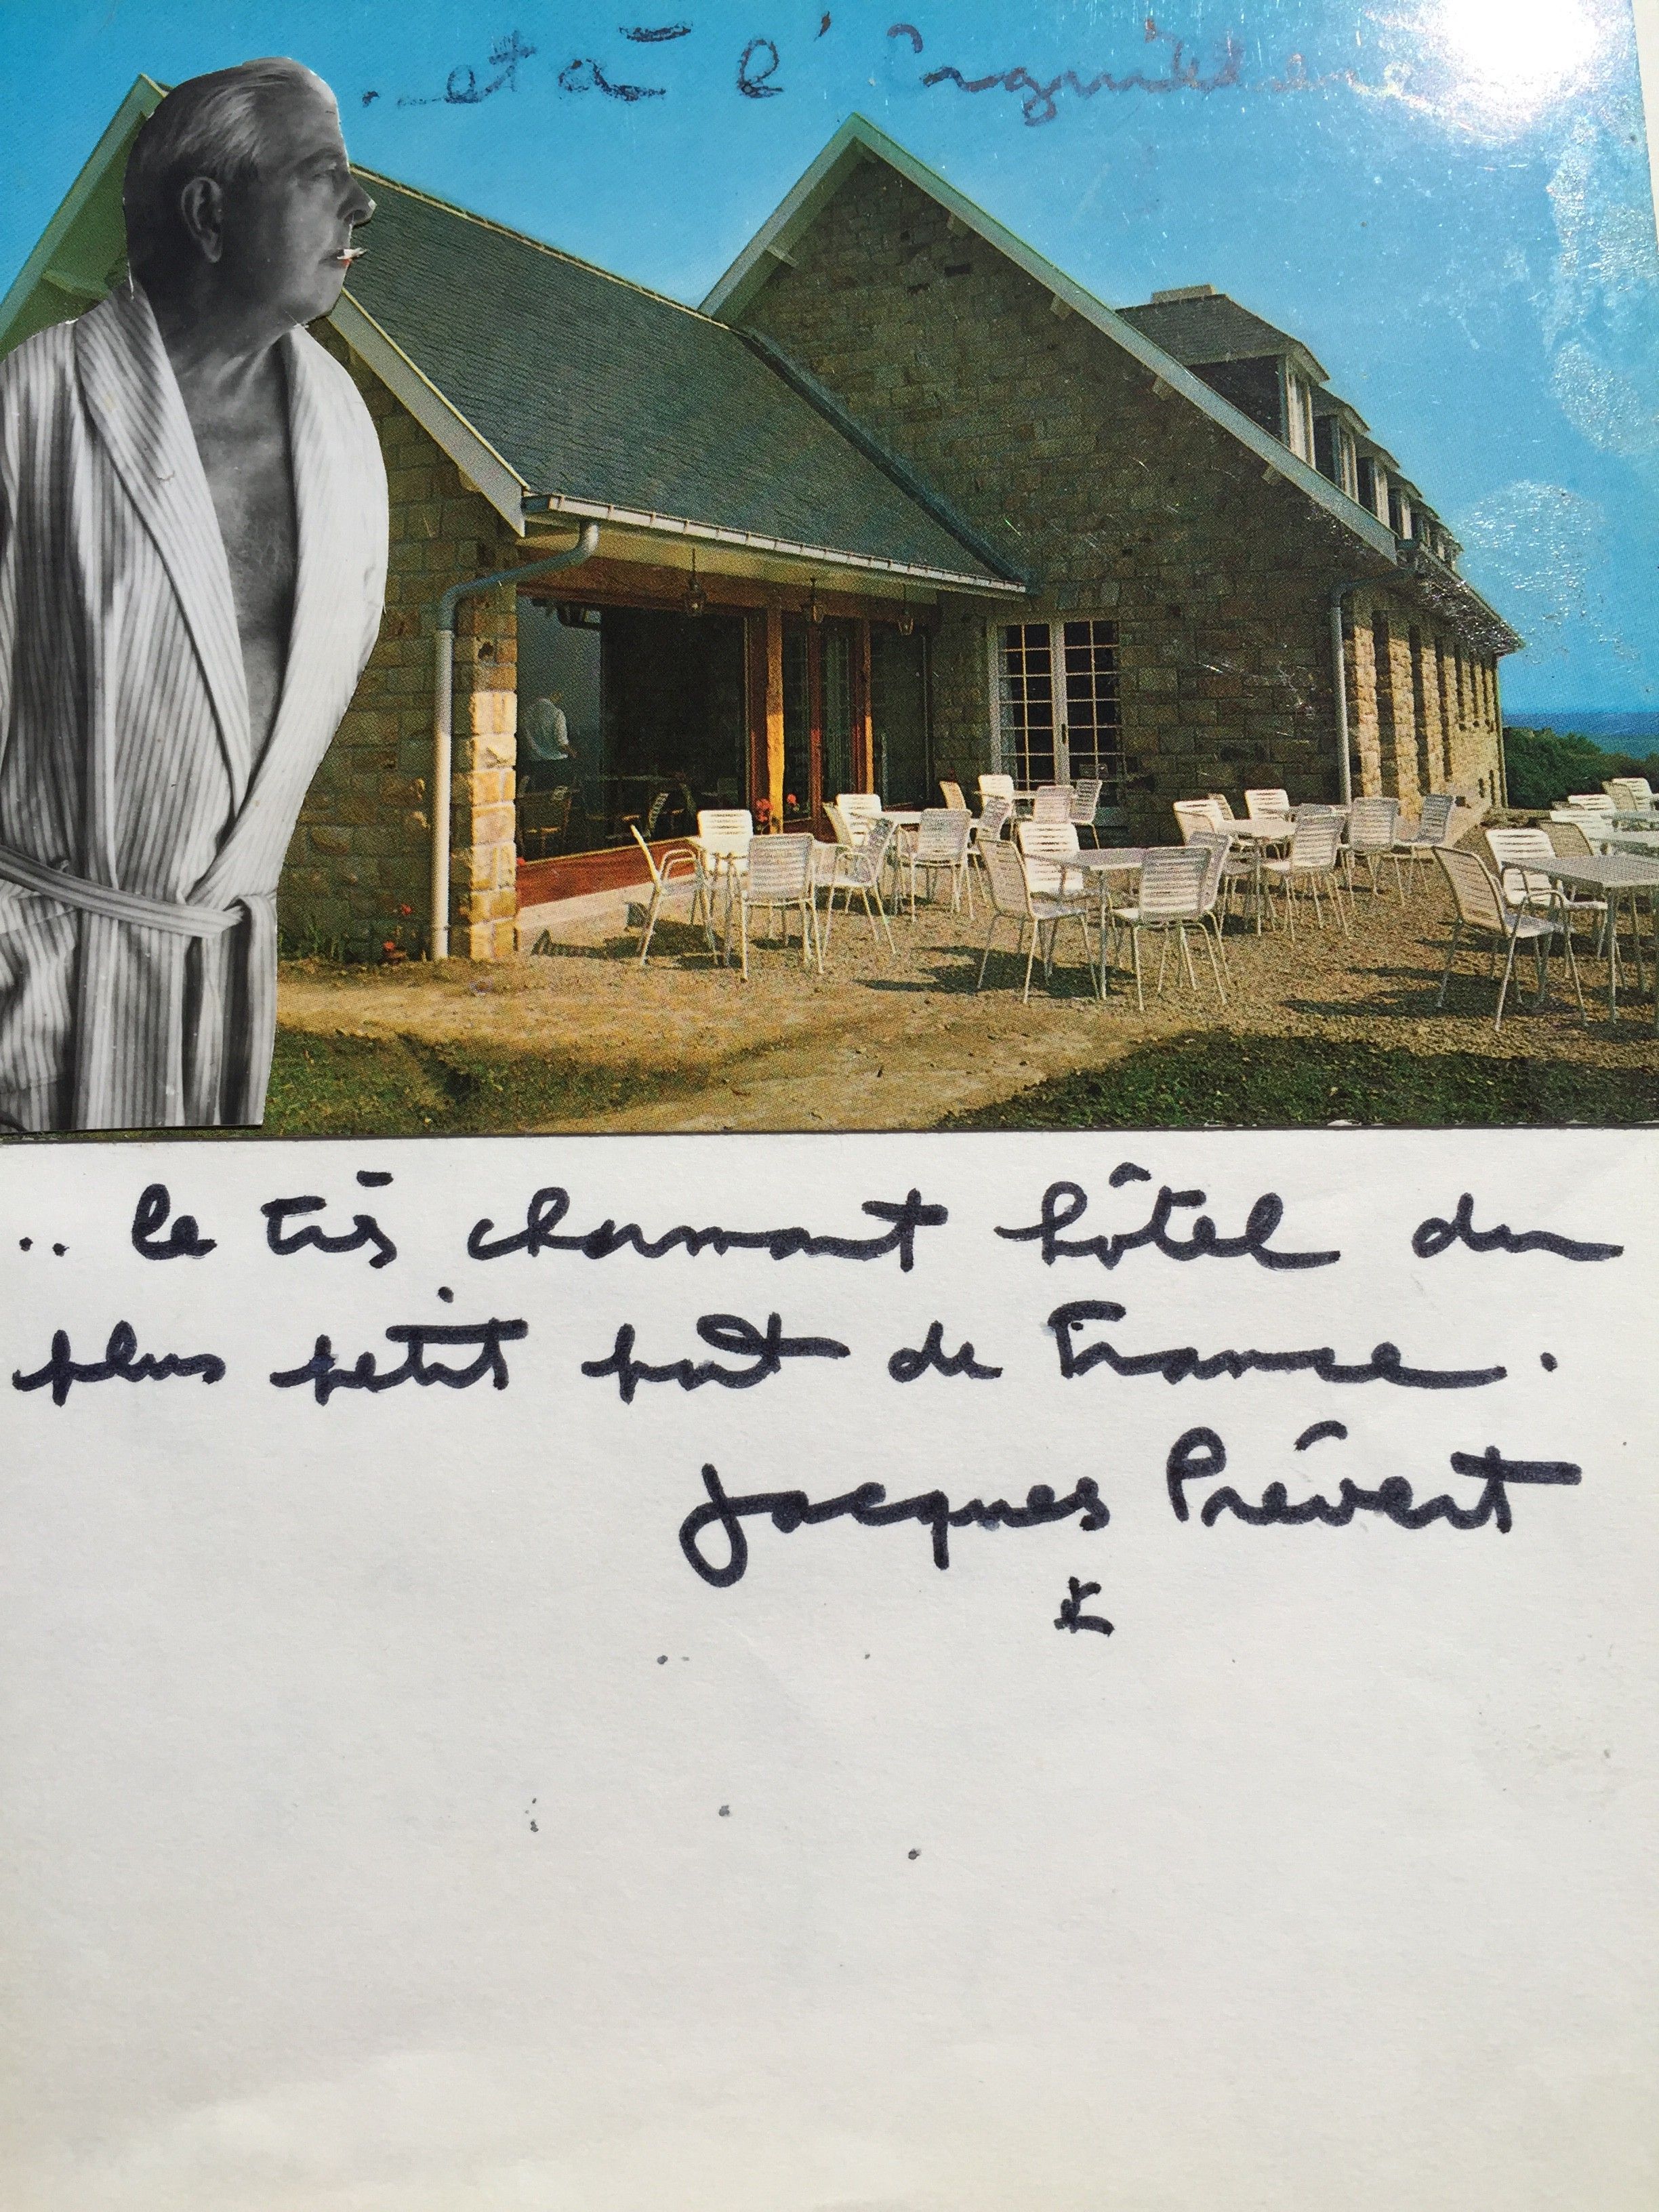 ..et à l'
.. le très charmant hôtel du
plus petit port de France.
Jacques Prévert